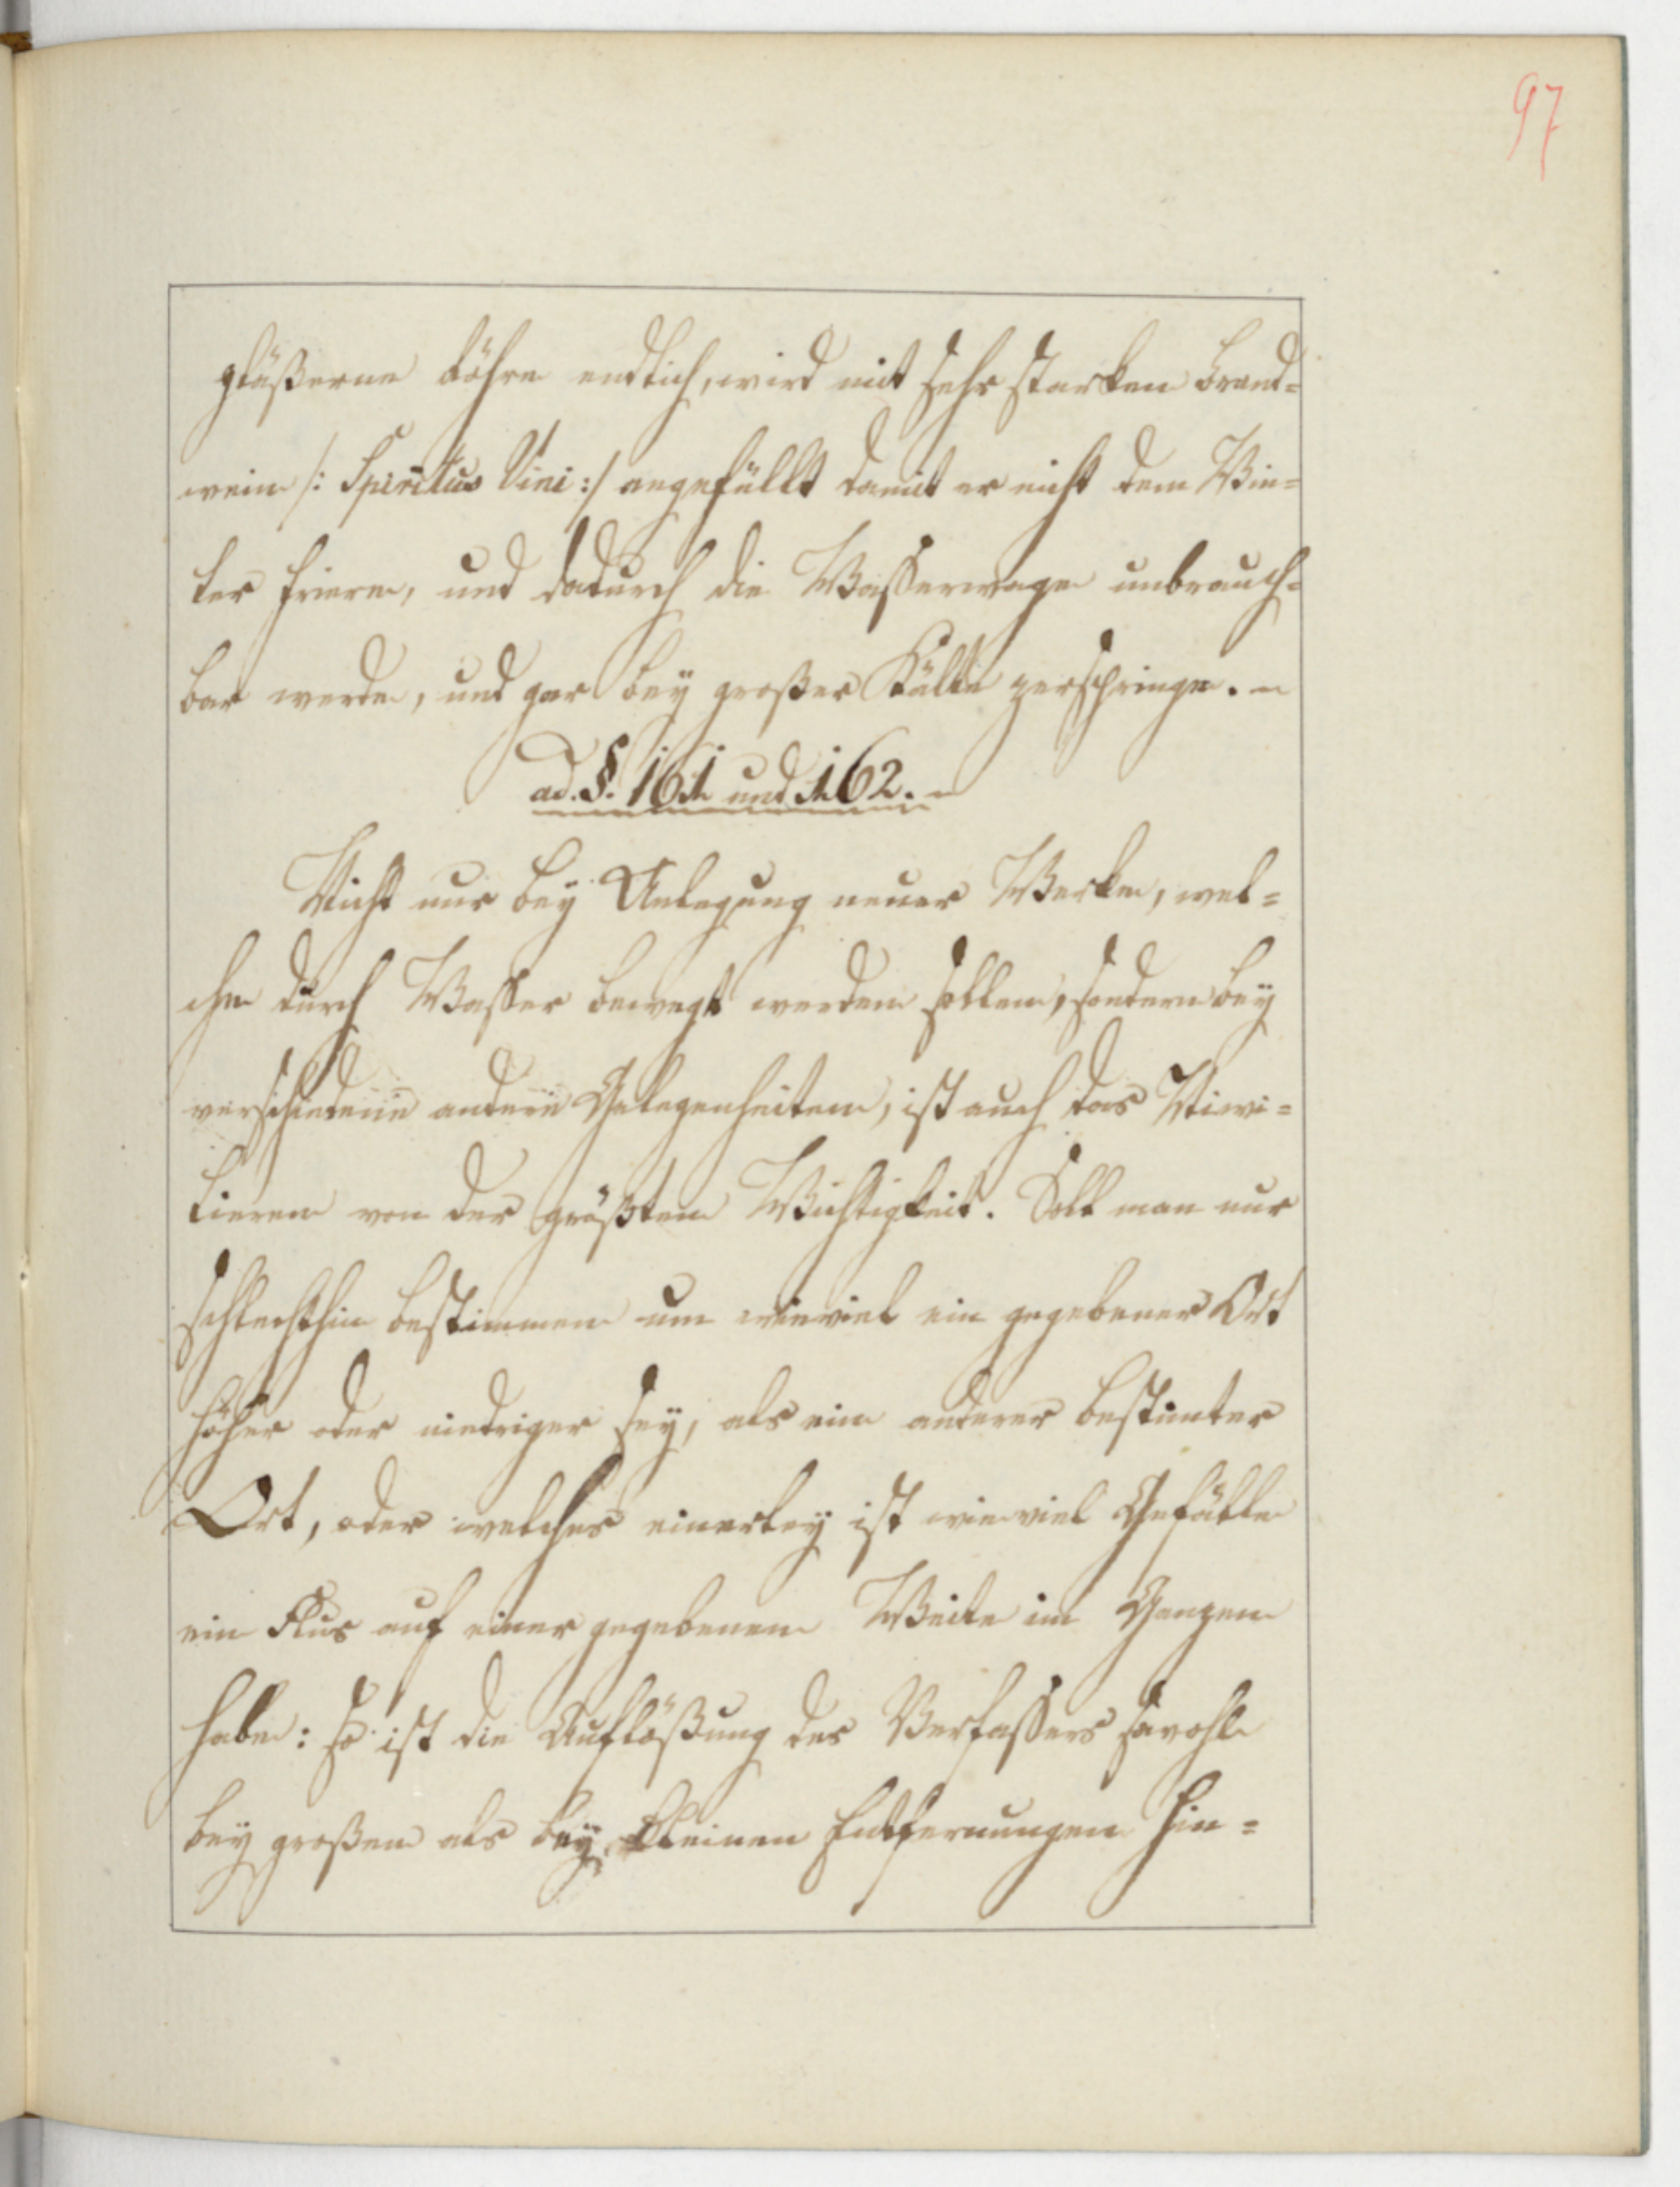 97
gläßerne Röhre endlich, wird mit sehr starken Brand=
wein /: Spiritus Vini :/ angefüllt damit er nicht dem Win=
ter friere, und dadurch die Waßerwage unbrauch=
bar werde, und gar bey großer Kälte zerspringe. –
ad. §. 161 und 162. –
Nicht nur bey Anlegung neuer Werke, wel=
che durch Waßer bewegt werden sollen, sondern bey
verschiedene andere Gelegenheiten, ist auch das Niwi=
lieren von der größten Wichtigkeit. Soll man nur
schlechthin bestimmen um wieviel ein gegebener Ort
höher oder niedriger sey, als ein anderer bestimter
Ort, oder welches einerley ist wieviel Gefälle
ein Flus auf einer gegebenen Weite im Ganzen
habe: so ist die Auflößung des Verfaßers sowohl
bey großen als bey kleinen Entfernungen hin=